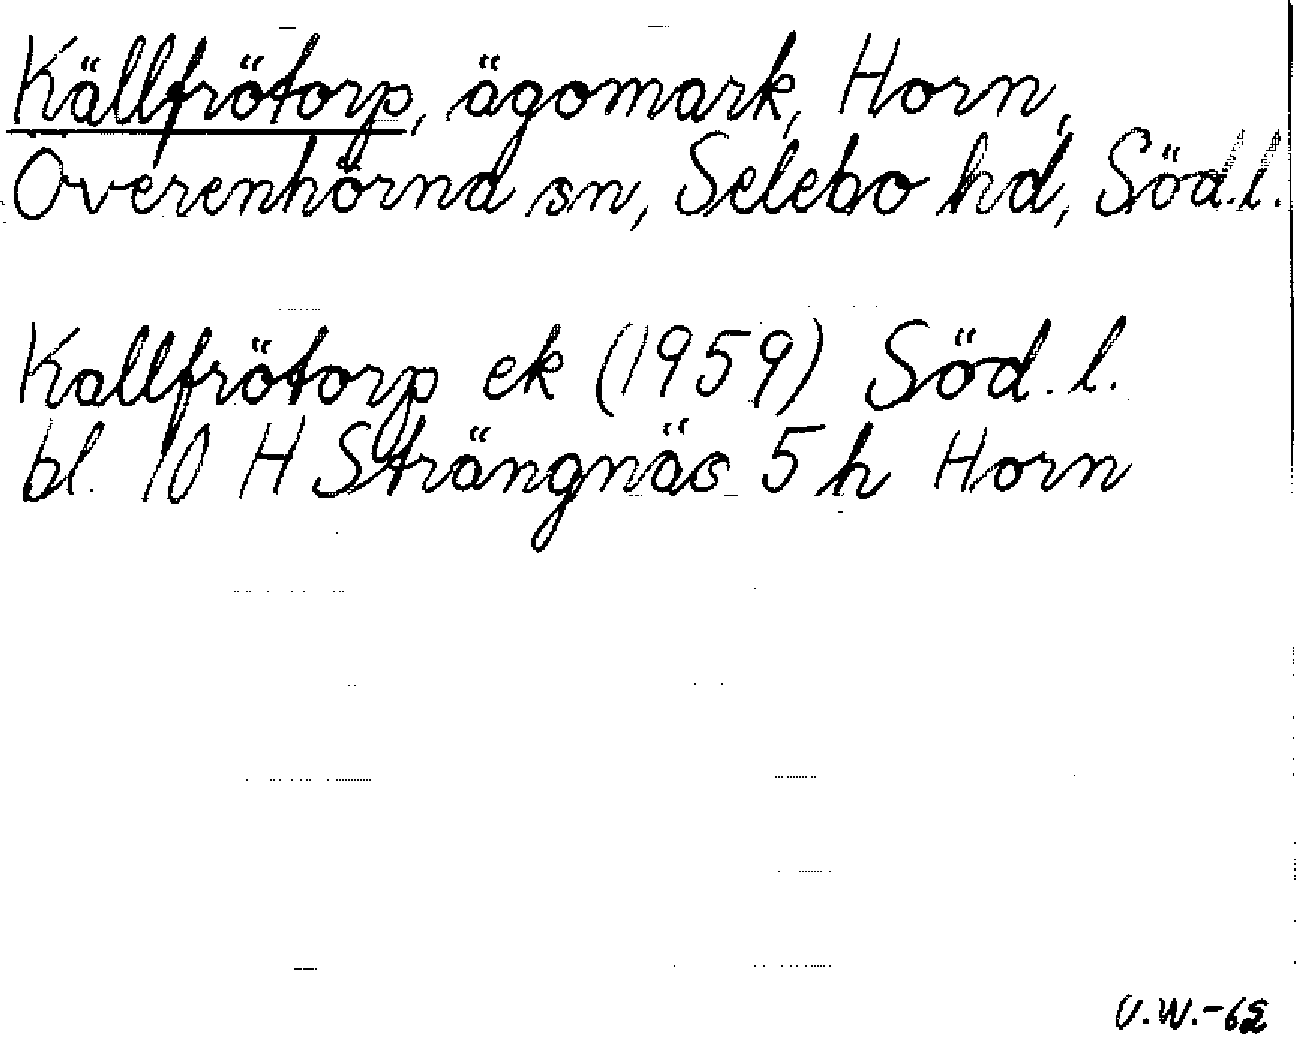 Källfrötorp, ägomark, Horn,
Överenhörnd sn, Selebo hd, Söd.l.
Kallfrötorp ek (1959) Söd. l.
bl. 10 H Strängnäs 5 h Horn
U.W.-62